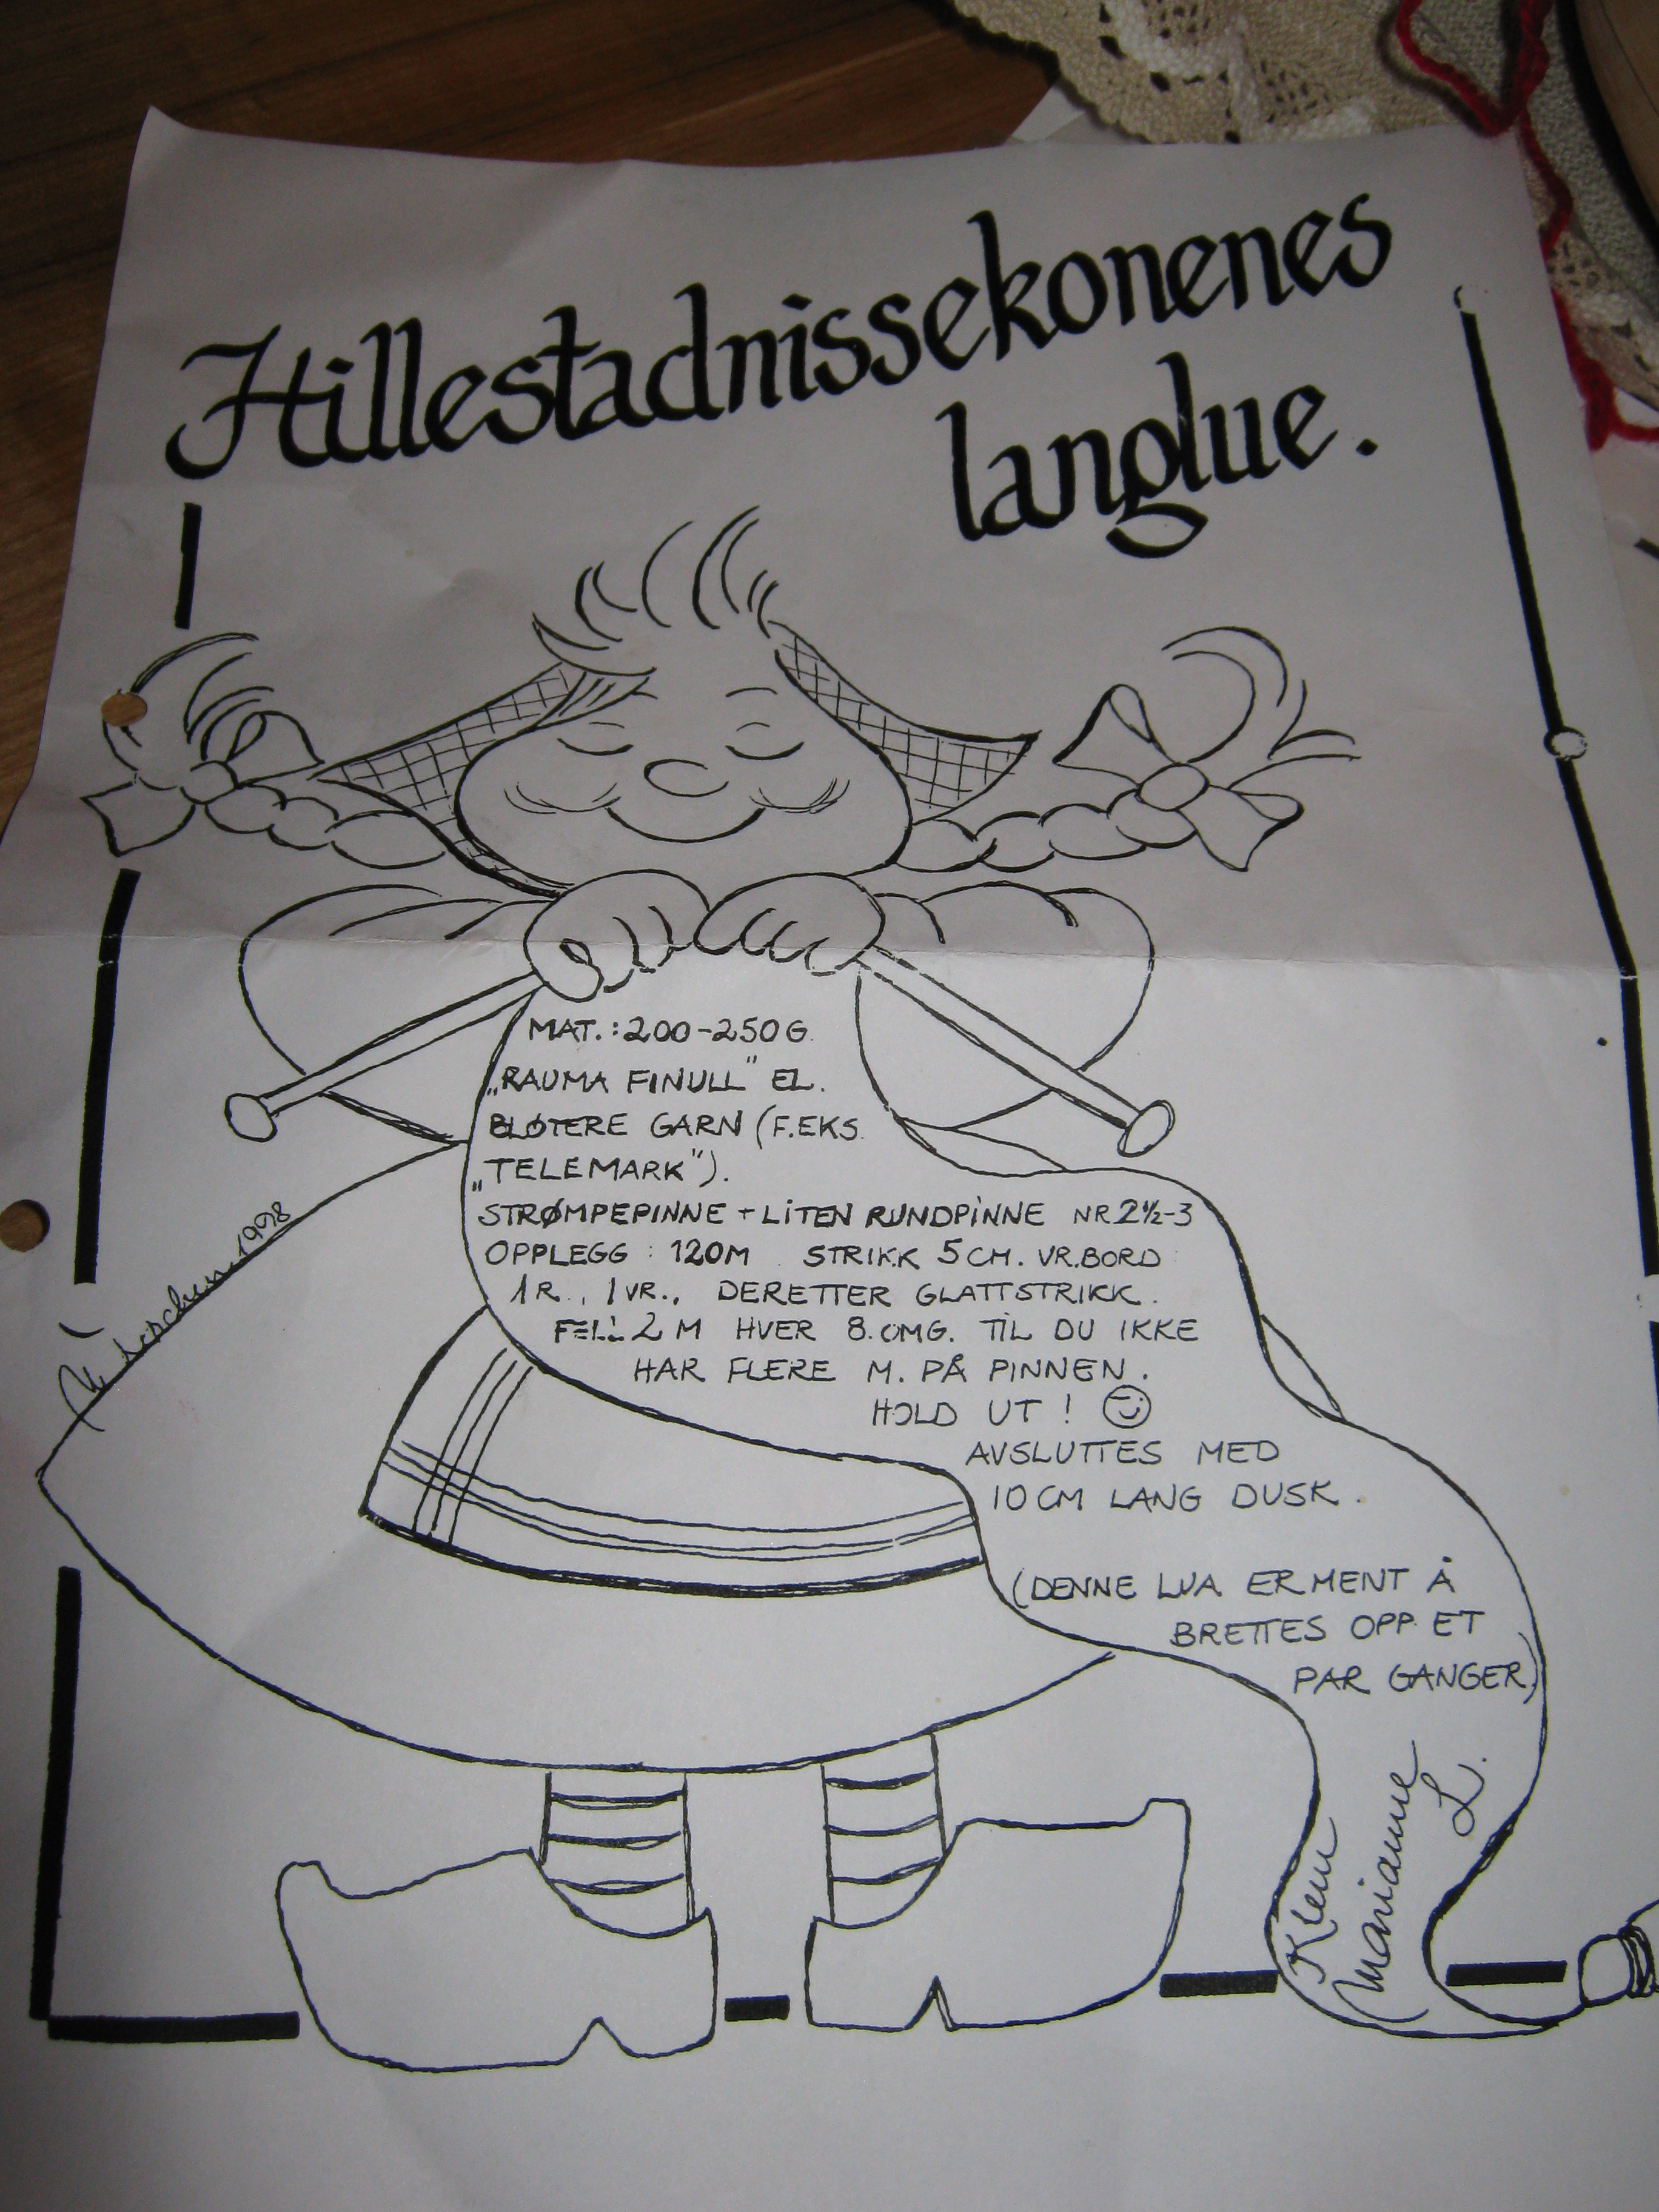 Hillestadnissekonenes
langlue.
MAT.: 200-250G.
„RAUMA FINULL" EL.
BLØTERE GARN (F.EKS.
„TELEMARK").
STRØMPEPINNE + LITEN RUNDPINNE NR 2½-3
OPPLEGG : 120M STRIKK 5 CM. VR.BORD
1 R., 1 VR., DERETTER GLATTSTRIKK.
FELL 2 M HVER 8. OMG. TIL DU IKKE
HAR FLERE M. PÅ PINNEN.
HOLD UT !
AVSLUTTES MED
10 CM LANG DUSK.
(DENNE LUA ER MENT Å
BRETTES OPP ET
PAR GANGER)
Klem
Marianne
L.
1998